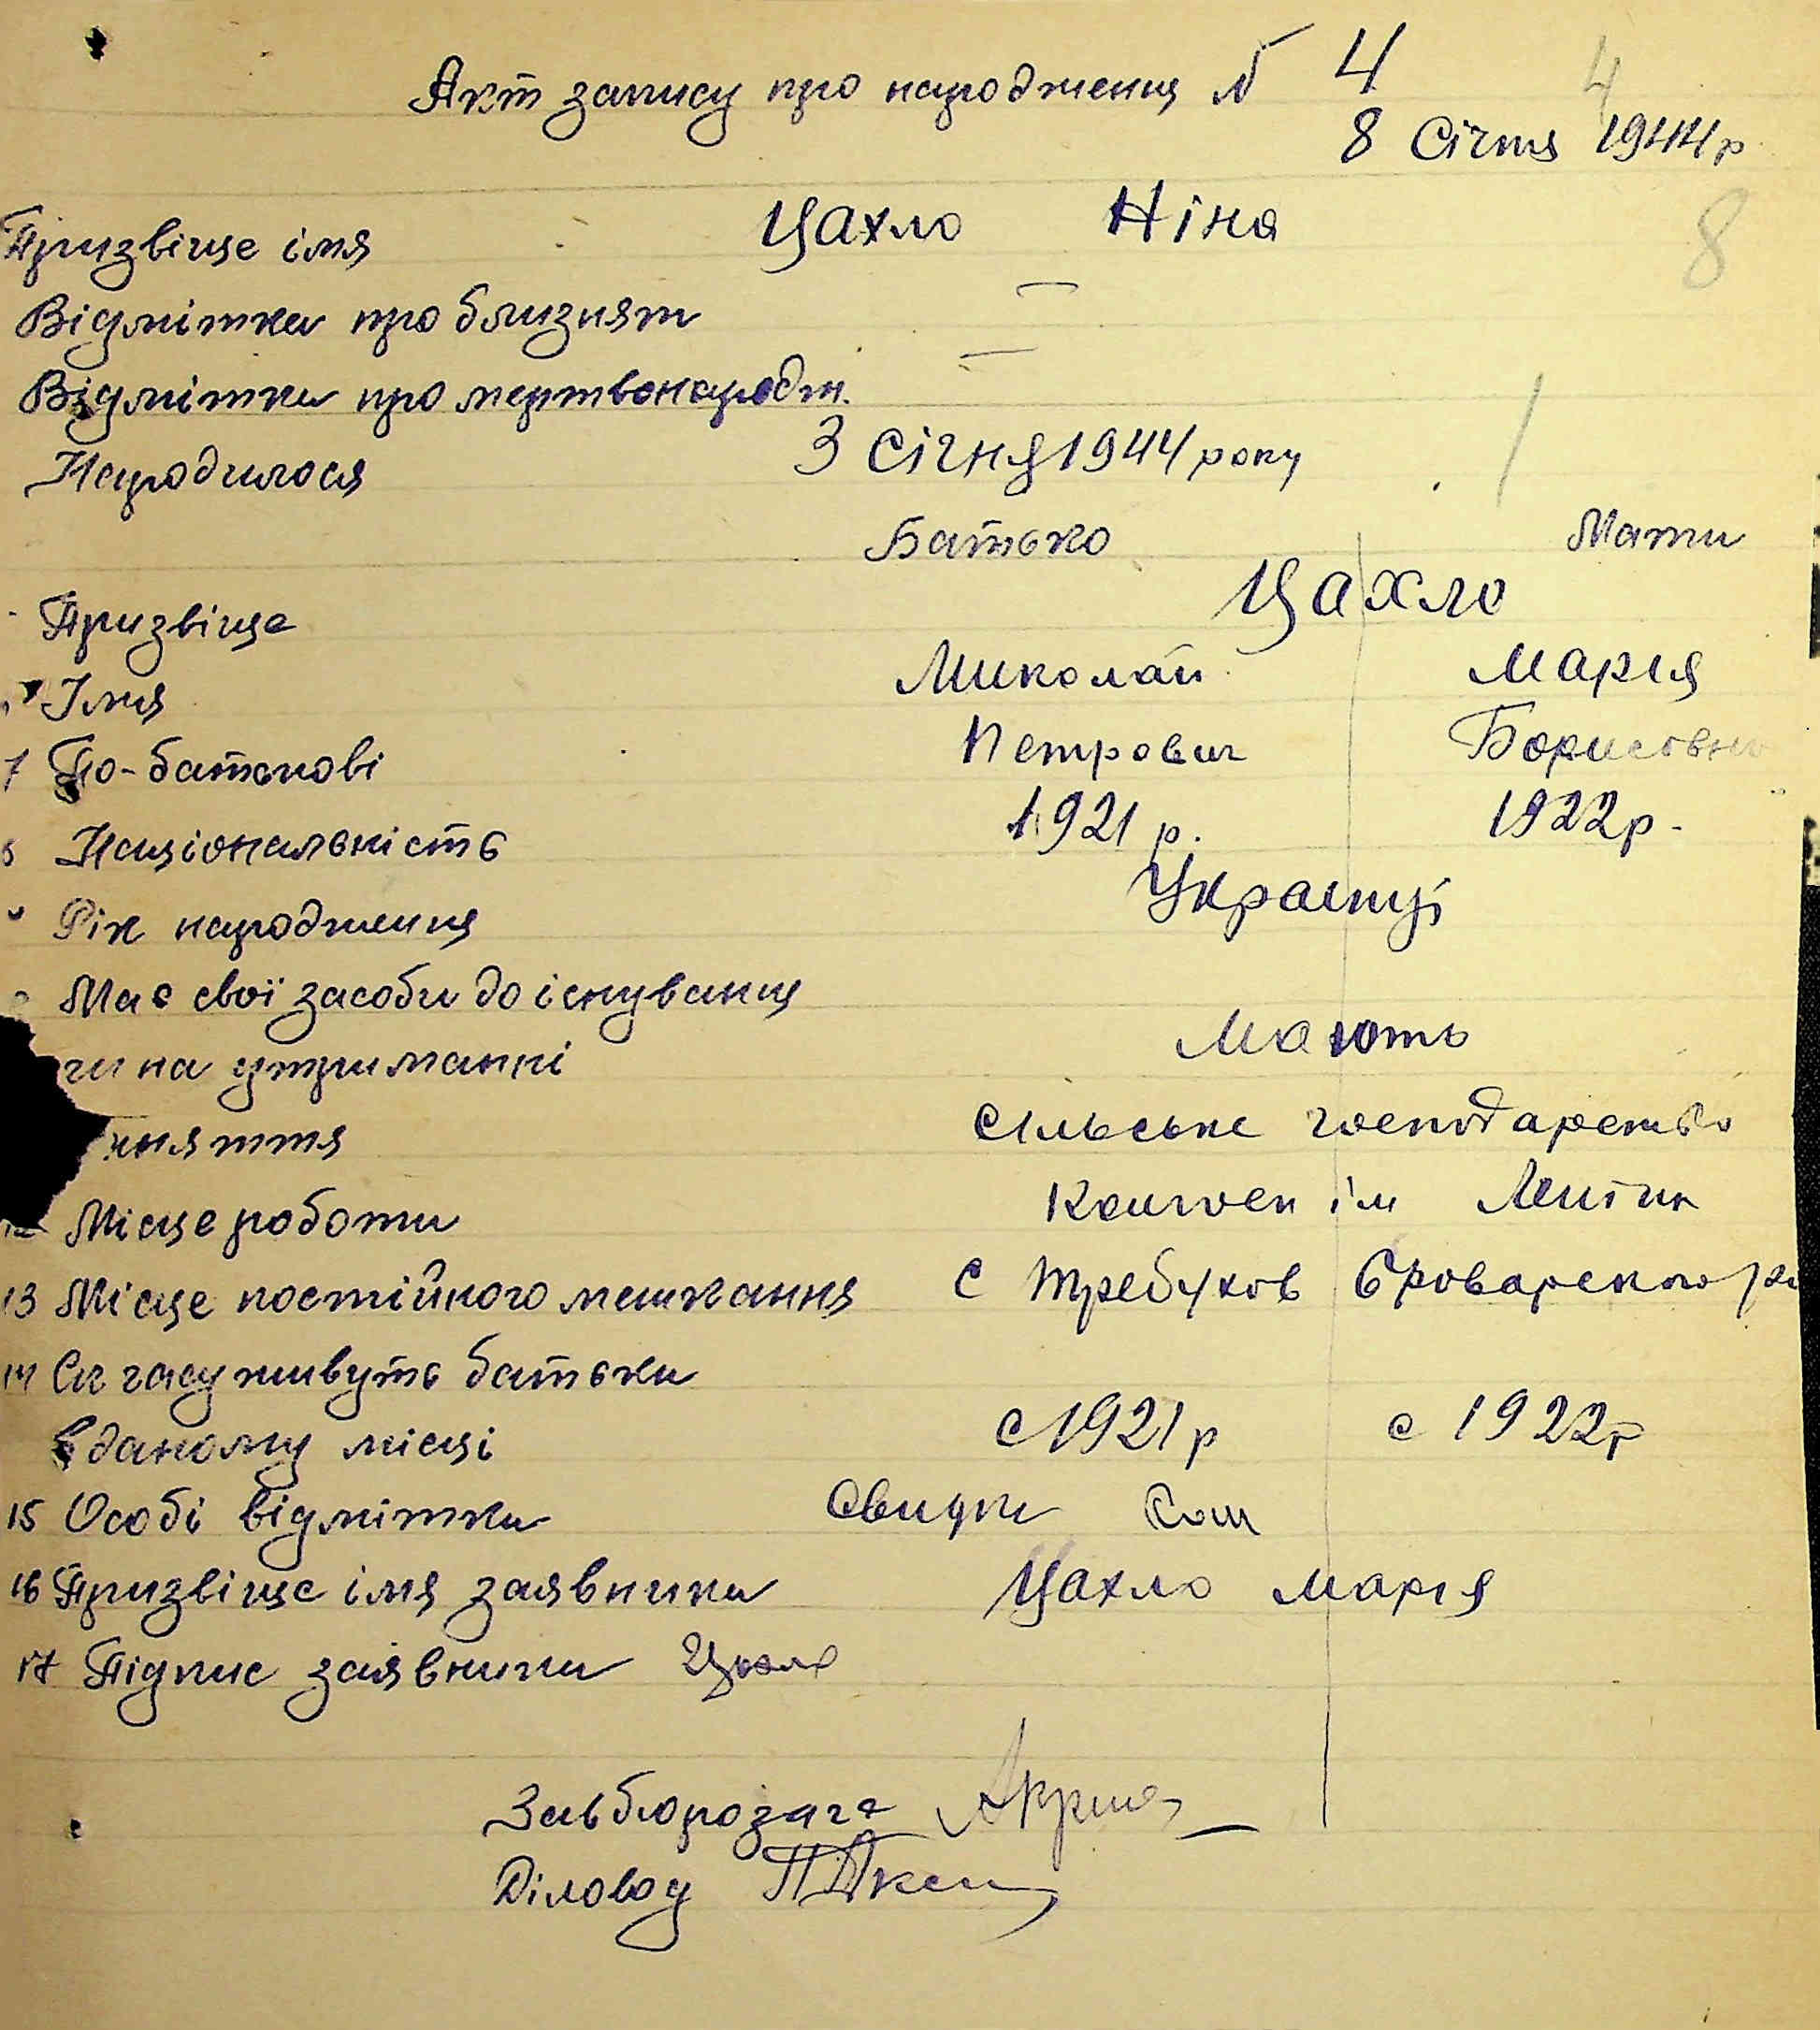 Акт запису про народження № 4 4
8 Січня 1944 р
8
Призвіще імя Цахло Ніна
Відмітка про близнят —
Відмітка про мертвонародж. —
Народилося 3 Січня 1944 року
Батько Мати
Призвіще Цахло
Імя Миколай Мария
7 По-батькові Петрович Борисовна
8 Національність 1921 р. 1922 р.
Рік народження Украинці
Має свої засоби до існування
чи на утриманні Мають
няття Сільське господарство
12 Місце роботи Колгосп ім Леніна
13 Місце постійного мешкання С Требухов Броварского р
14 Си часу живуть батьки
в даному місці с 1921 р с 1922 р
15 Особі відмітки Свидки
16 Призвіще імя заявника Цахло Мария
17 Підпис заявника Цахло
Завбюрозагс
Діловод